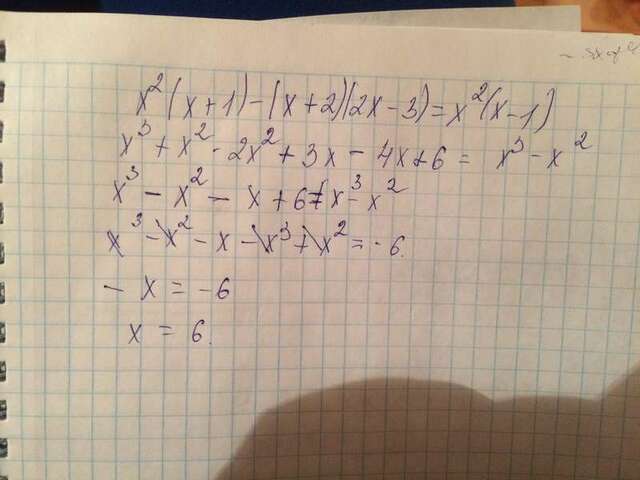 x²(x+1)-(x+2)(2x-3)=x²(x-1)
x³+x²-2x²+3x-4x+6=x³-x²
x³-x²-x+6=x³-x²
x³-x²-x-x³+x²=-6
-x=-6
x=6.